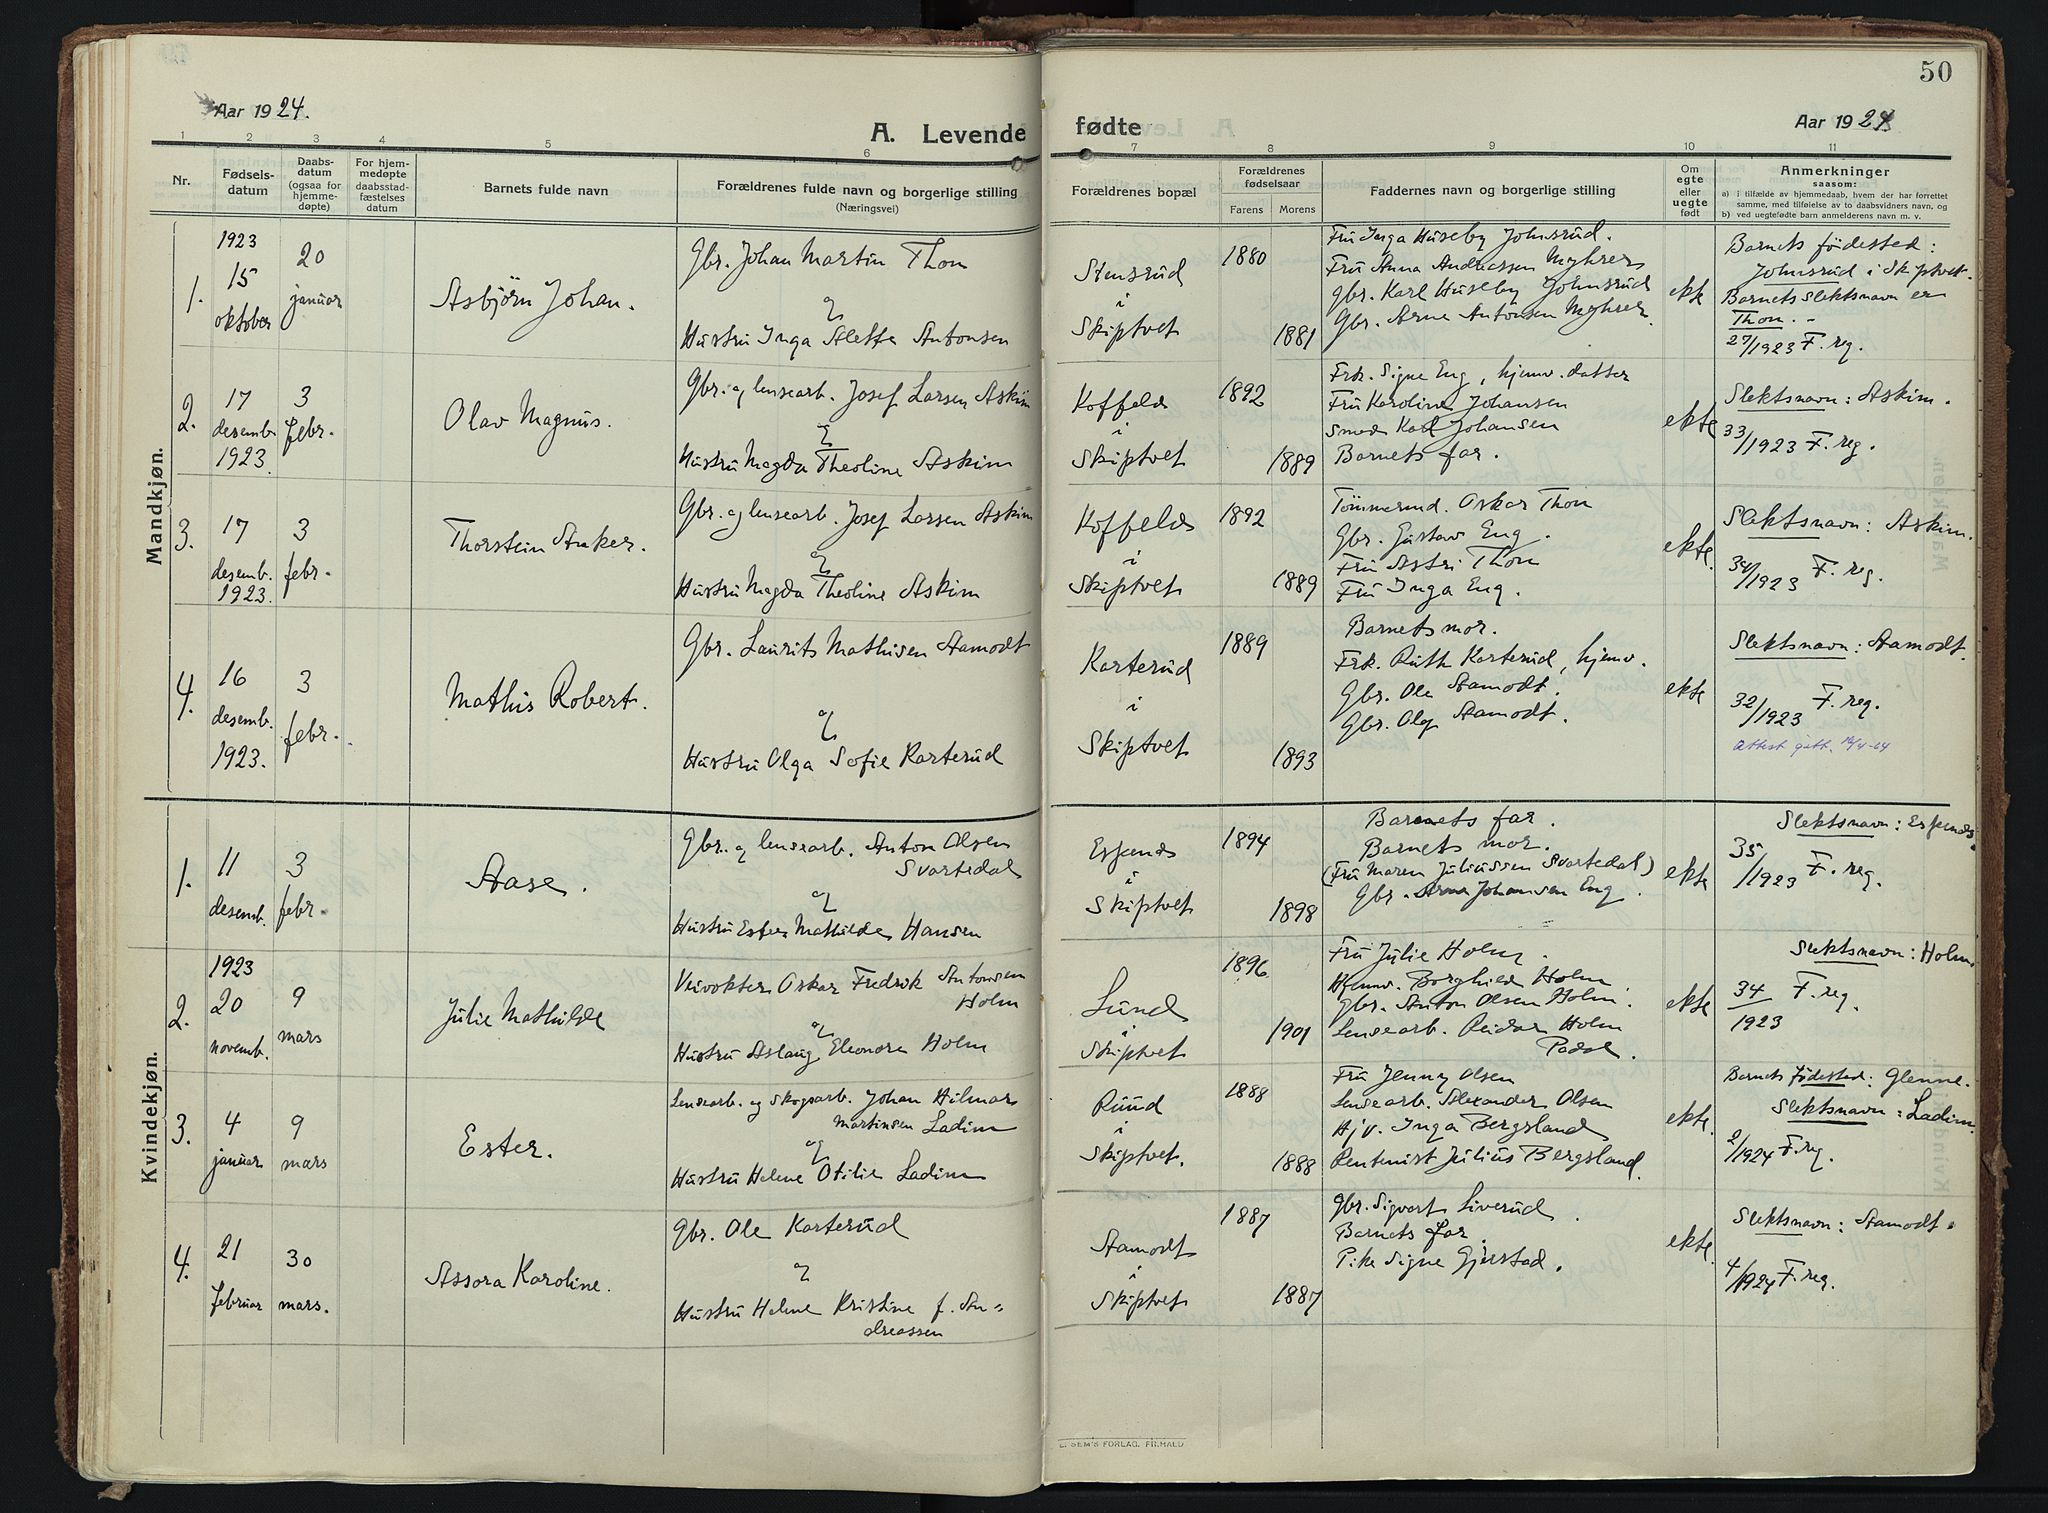 50
Aar 1924.
A. Levende fødte
Aar 1924
1 2 3 4 5 6 7 8 9 10 11
Nr.
Fødsels-
datum
Daabs-
datum
(ogsaa for
hjemme-
døpte)
For hjem-
medøpte
daabsstad-
fæstelses
datum
Barnets fulde navn
Forældrenes fulde navn og borgerlige stilling
(Næringsvei)
Forældrenes bopæl
Forældrenes
fødselsaar
Farens
Morens
Faddernes navn og borgerlige stilling
Om
egte
eller
uegte
født
Anmerkninger
saasom:
a) i tilfælde av hjemmedaab, hvem der har forrettet
samme, med tilføielse av to daabsvidners navn, og
b) ved uegtefødte barn anmelderens navn m. v.
Mandkjøn.
1.
1923
15
oktober
20
januar
Asbjörn Johan.
Gbr. Johan Martin Thon
og
Hustru Inga Alette Antonsen
Stensrud
i
Skiptvet
1880
1881
Fru Inga Huseby Johnsrud.
Fru Anna Andreassen Myhrer
Gbr. Karl Huseby Johnsrud
Gbr. Arne Antonsen Myhrer.
ekte
Barnets födested:
Johnsrud i Skiptvet.
Barnets slektsnavn er
Thon. -
27/1923 F. reg.
2.
17
desemb.
1923.
3
febr.
Olav Magnus.
Gbr. og lensearb. Josef Larsen Askim
og
Hustru Magda Theoline Askim
Koffeld
i
Skiptvet
1892
1889
Frk. Signe Eng, hjemv. datter
Fru Karoline Johansen
Smed Karl Johansen
Barnets far.
ekte
Slektsnavn: Askim.
33/1923 F. reg.
3.
17
desemb.
1923.
3
febr.
Thorstein Anker.
Gbr. og lensearb. Josef Larsen Askim
og
Hustru Magda Theoline Askim
Koffeld
i
Skiptvet
1892
1889
Tömmermd. Oskar Thon
Gbr. Gustav Eng.
Fru Astri Thon
Fru Inga Eng.
ekte.
Slektsnavn: Askim.
34/1923 F. reg.
4.
16
desemb.
1923.
3
febr.
Mathis Robert.
Gbr. Laurits Mathisen Aamodt
og
Hustru Olga Sofie Karterud
Karterud
i
Skiptvet
1889
1893
Barnets mor.
Frk. Ruth Karterud, hjemv.
Gbr. Ole Aamodt.
Gbr. Olaf Aamodt.
ekte
Slektsnavn: Aamodt.
32/1923 F. reg.
Kvindekjøn.
1.
11
desemb.
3
febr.
Aase.
Gbr. og lensearb. Anton Olsen
Svartedal
og
Hustru Ester Mathilde Hansen
Espenes
i
Skiptvet
1894
1898
Barnets far.
Barnets mor.
(Fru Maren Juliussen Svartedal)
Gbr. Arne Johansen Eng.
ekte
Slektsnavn: Espenes.
35/1923 F. reg.
2.
1923
20
novemb.
9
mars
Julie Mathilde
Veivokter Oskar Fredrik Antonsen
Holm
og
Hustru Aslaug Eleonora Holm
Lund
i
Skiptvet
1896
1901
Fru Julie Holm.
Hjemv. Borghild Holm
Gbr. Anton Olsen Holm.
Lensearb. Reidar Holm
ekte
Slektsnavn: Holm.
34/1923 F. reg.
3.
4
januar
9
mars
Ester.
Lensearb. og skogsarb. Johan Hilmar
Martinsen Ladim
og
Hustru Helene Otilie Ladim
Ruud
i
Skiptvet.
1888
1888
Fru Jenny Olsen
Lensearb. Alexander Olsen
Hjv. Inga Bergsland
Rentenist Julius Bergsland.
ekte.
Barnets födested: Glenne.
Slektsnavn: Ladim.
2/1924 F. reg.
4.
21
februar
30
mars.
Assora Karoline.
Gbr. Ole Karterud
og
Hustru Helene Kristine f. An-
dreassen
Aamodt
i
Skiptvet
1887
1887
Gbr. Sigvart Liverud.
Barnets far.
Pike Signe Gjerstad.
ekte.
Slektsnavn: Aamodt.
4/1924 F. reg.
E. SEM'S FORLAG. FR.HALD